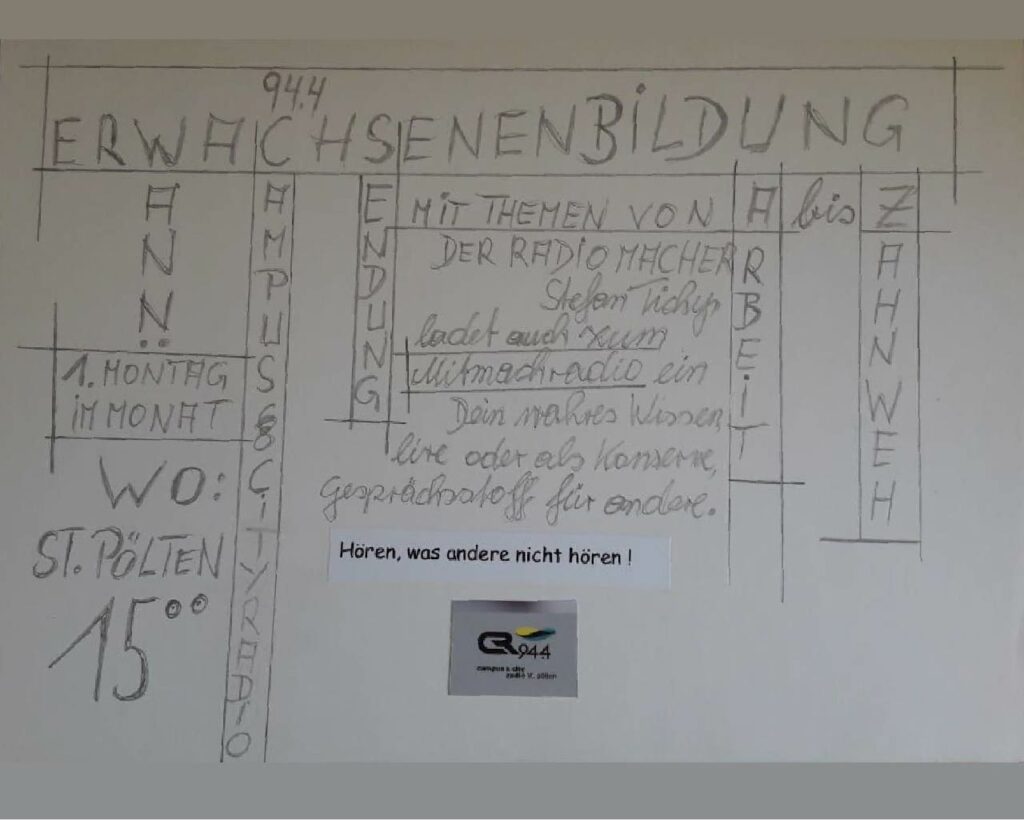 94.4
ERWACHSENENBILDUNG
WANN:
1. MONTAG
IM MONAT
WO:
ST. PÖLTEN
15⁰⁰
CAMPUS & CITYRADIO
SENDUNG
MIT THEMEN VON A bis Z
DER RADIOMACHER
Stefan Tichy,
ladet auch zum
Mitmachradio ein
Dein wahres Wissen,
live oder als Konserve,
Gesprächsstoff für andere.
ARBEIT
ZAHNWEH
Hören, was andere nicht hören !
CR 94.4
campus & city
radio st. pölten